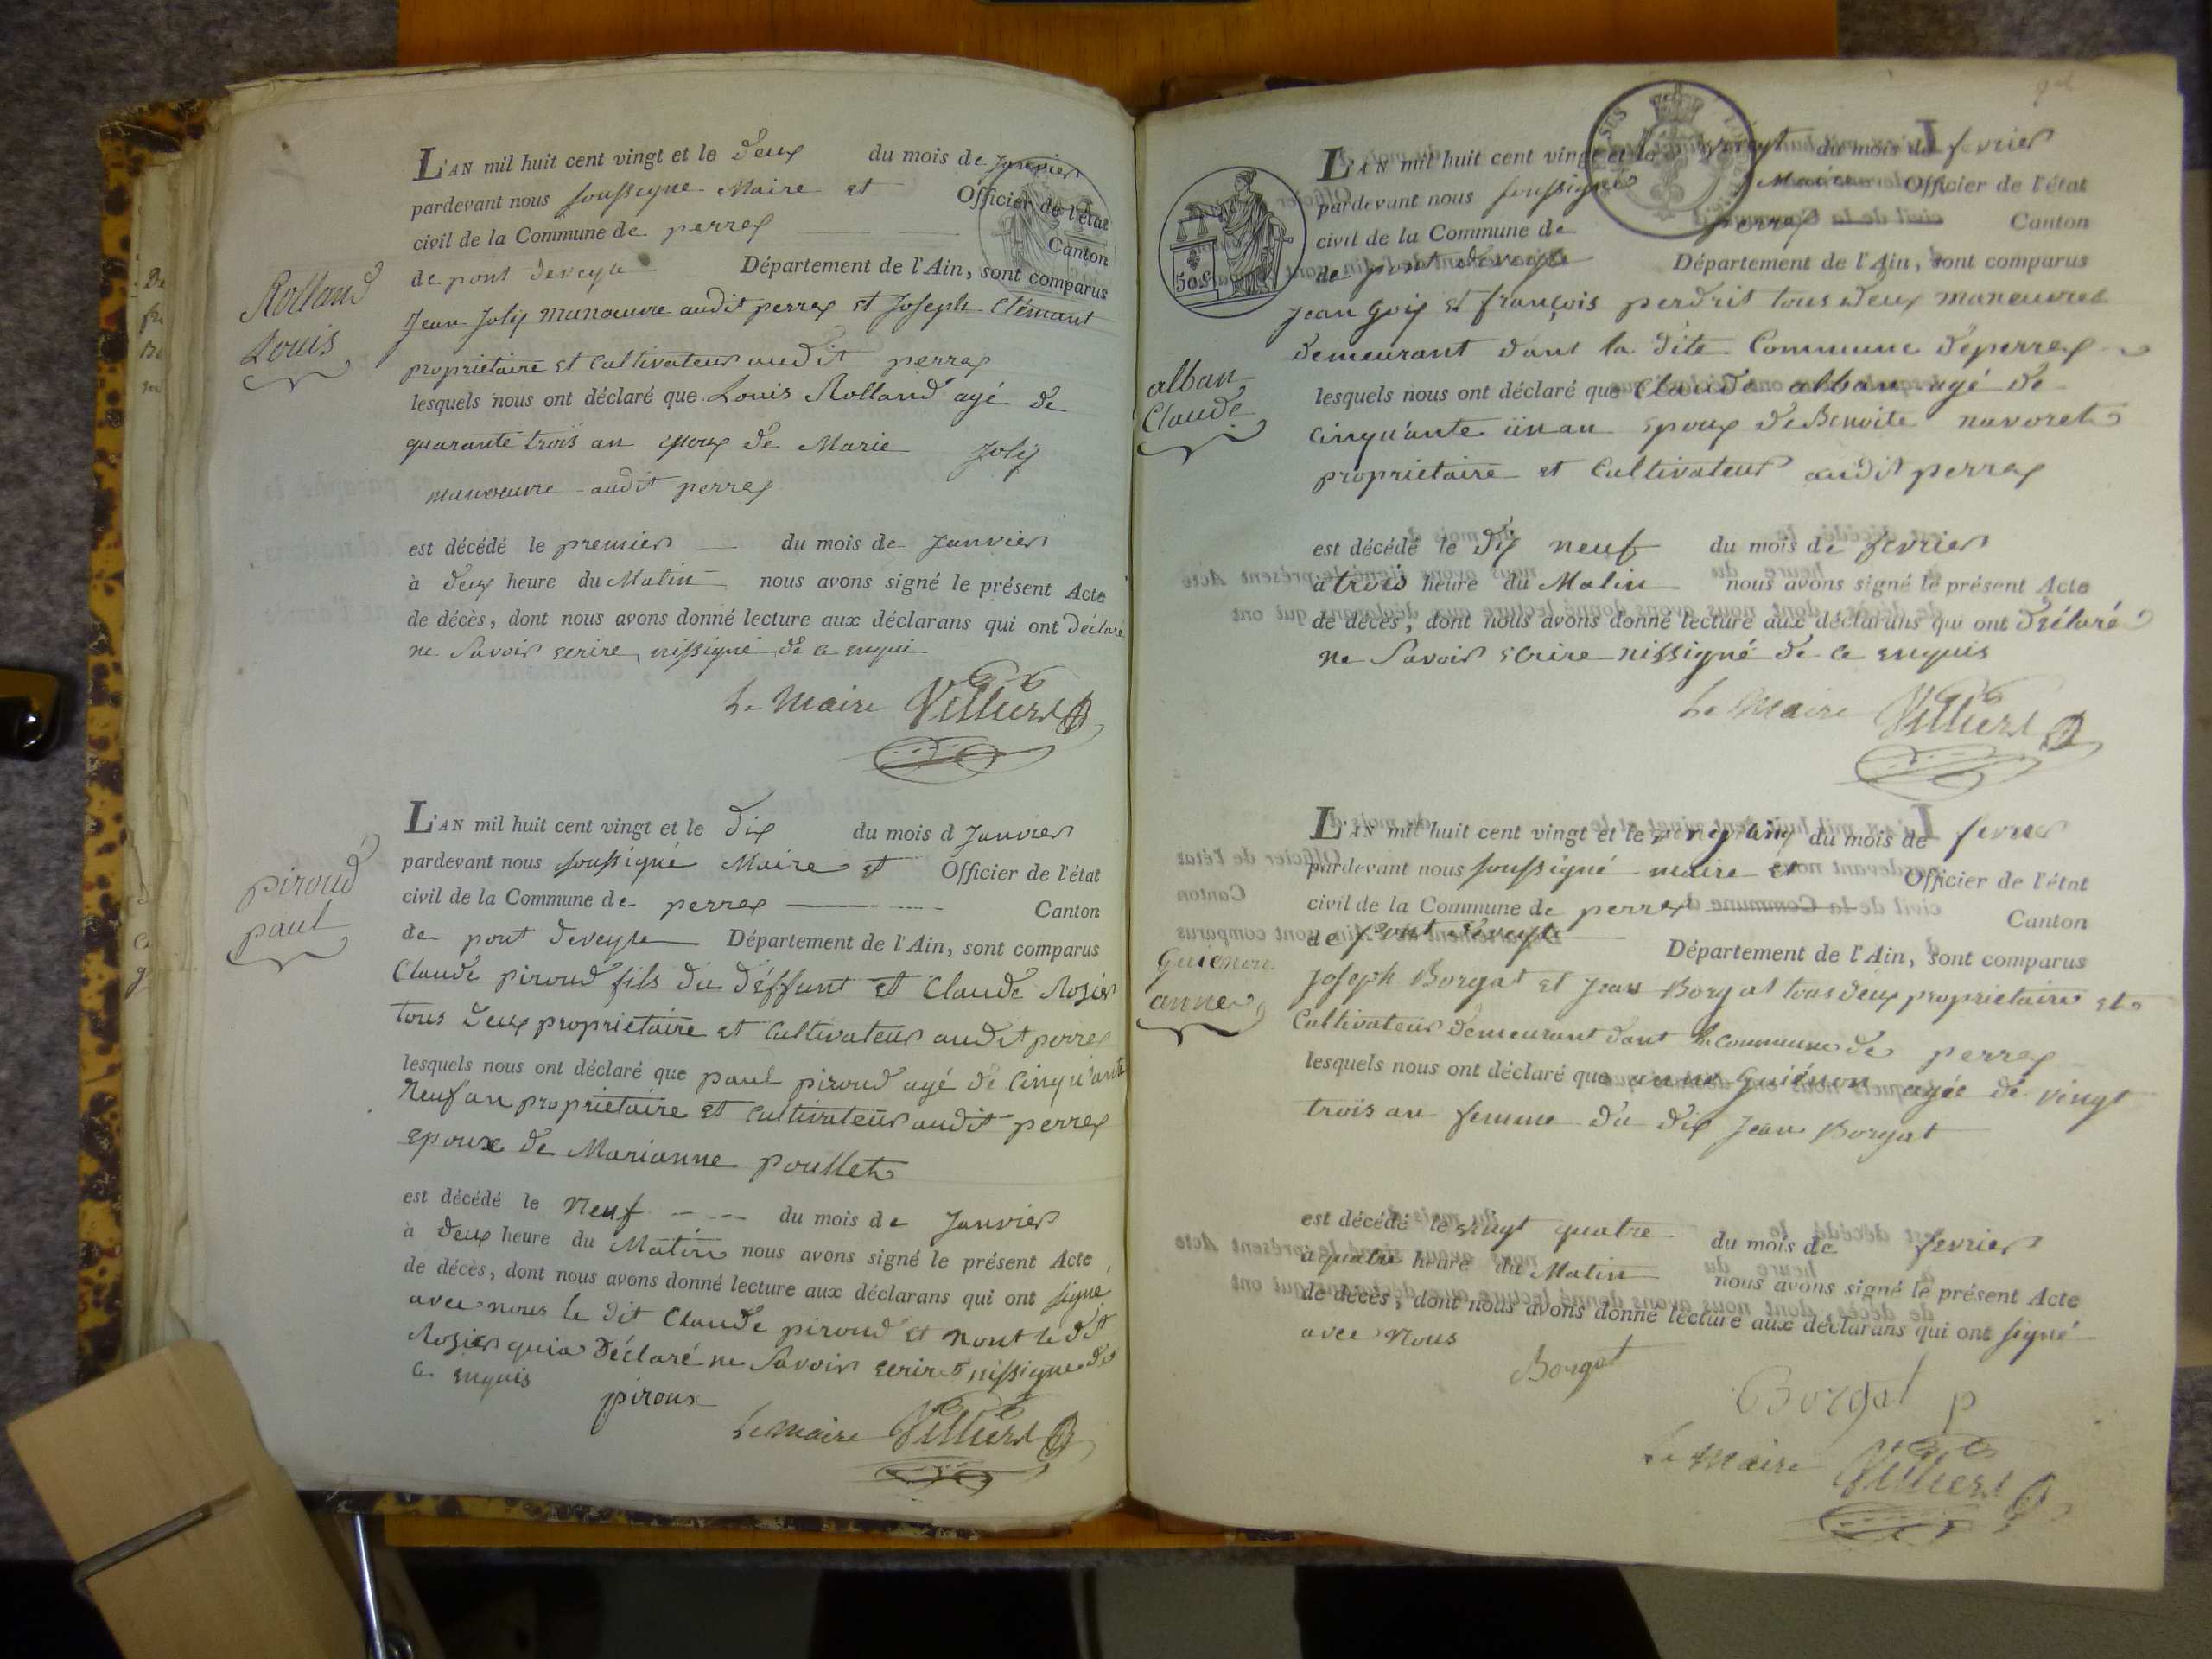 Rolland
Louis
L'AN mil huit cent vingt et le deux du mois de Janvier
pardevant nous soussigne Maire et Officier de l'état
civil de la Commune de perrex Canton
de pont deveyle Département de l'Ain, sont comparus
Jean Joly manoeuvre audit perrex et Joseph Clémant
proprietaire et cultivateur audit perrex
lesquels nous ont déclaré que Louis Rolland agé de
quarante trois an epoux de Marie Joly
manoeuvre audit perrex
est décédé le premier du mois de Janvier
à deux heure du Matin nous avons signé le présent Acte
de décès, dont nous avons donné lecture aux déclarans qui ont déclaré
ne Savoir ecrire nissigné de ce enquis
Le Maire Villierd
piroud
paul
L'AN mil huit cent vingt et le dix du mois d Janvier
pardevant nous soussigné Maire et Officier de l'état
civil de la Commune de perrex Canton
de pont deveyle Département de l'Ain, sont comparus
Claude piroud fils du déffunt et Claude Rosier
tous deux proprietaire et cultivateur audit perrex
lesquels nous ont déclaré que paul piroud agé de Cinqu'ante
Neuf an proprietaire et cultivateur audit perrex
epoux de Marianne poullet
est décédé le Neuf du mois de Janvier
à deux heure du Matin nous avons signé le présent Acte
de décès, dont nous avons donné lecture aux déclarans qui ont signé
avec nous le dit Claude piroud et nont le dit
Rosier quia Déclaré ne Savoir ecrire nissigne de
ce enquis
piroux
Le Maire Villierd
50c
alban
Claude
L'AN mil huit cent vingt et le vingt du mois de fevrier
pardevant nous soussigné Maire Officier de l'état
civil de la Commune de perrex Canton
de pont deveyle Département de l'Ain, sont comparus
Jean Goix et françois perdrit tous deux manoeuvres
demeurant dant la dite Commune deperrex
lesquels nous ont déclaré que Claude alban agé de
Cinqu'ante un an epoux de Benoite navoret
proprietaire et Cultivateur audit perrex
est décédé le dix neuf du mois de fevrier
à trois heure du Matin nous avons signé le présent Acte
de décès, dont nous avons donné lecture aux déclarans qui ont déclaré
ne Savoir ecrire nissigné de ce enquis
Le Maire Villierd
Guienon
anne
L'AN mil huit cent vingt et le vingt cinq du mois de fevrier
pardevant nous soussigné maire et Officier de l'état
civil de la Commune de perrex Canton
de pont deveyle Département de l'Ain, sont comparus
Joseph Borgat et Jean Borgat tous deux proprietaires et
Cultivateur demeurant dant la commune de perrex
lesquels nous ont déclaré que anne Guienon agée de vingt
trois an femme du dit Jean Borgat
est décédé le vingt quatre du mois de fevrier
à quatre heure du Matin nous avons signé le présent Acte
de décès, dont nous avons donné lecture aux déclarans qui ont signé
avec nous
Borgat
Borgat p
Le Maire Villierd